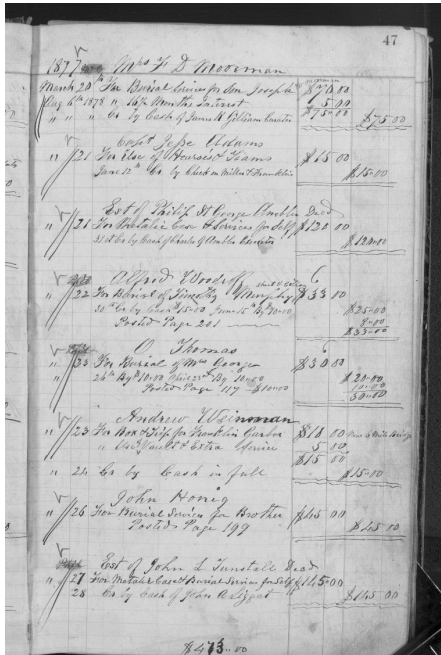 47
1877 Mrs F D Mooman
March 20th For Burial Services for Son Joseph $70.00
Aug 6th 1878 " 16½ Months Interest 5.00
" " " Cr by Cash of James R Gilliam $75.00 $75.00
Capt Jesse Adams
" 21 For Use of Hearse & Teams $15.00
June 12th Cr by Check on Miller & Franklin $15.00
Est of Philip St George Ambler Dead
" 21 For Metalic Case & Services for Self $120.00
Cr by Cash of Charles G Ambler $120.00
Alfred Woodroof
" 22 For Burial of Timothy Murphy $33.00
30th Cr by Cash $15.00 June 15th By 10.00 $25.00
Posted Page 201 8.00
$33.00
O Thomas
" 23 For Burial of Mrs George $30.00
26th By $10.00 23rd By 10.00 $20.00
Posted Page 117 $10.00 10.00
30.00
Andrew Weinman
" 23 For Box & for Franklin $10.00
" Use Vault & Extra Service 5.00
$15.00
" 24 Cr by Cash in full $15.00
John Honig
" 26 For Burial Services for Brother $45.00
Posted Page 199 $45.00
Est of John L Tunstall Dead
" 27 For Metalic Case & Burial Services for Self $145.00
28 Cr by Cash of John A $145.00
$473.00